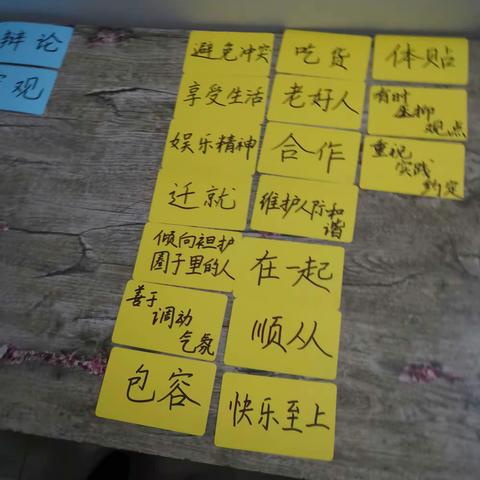 辩论
观
避免冲突
享受生活
娱乐精神
迁就
倾向袒护
圈子里的人
善于
调动
气氛
包容
吃货
老好人
合作
维护人际和
谐
在一起
顺从
快乐至上
体贴
有时
压抑
观点
重视
实践
约定